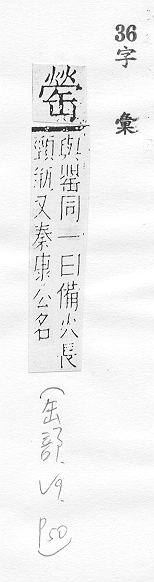 36字彙
罃
與罌同一曰備火長
頸瓶又秦康公名
(缶部. V9. P50)